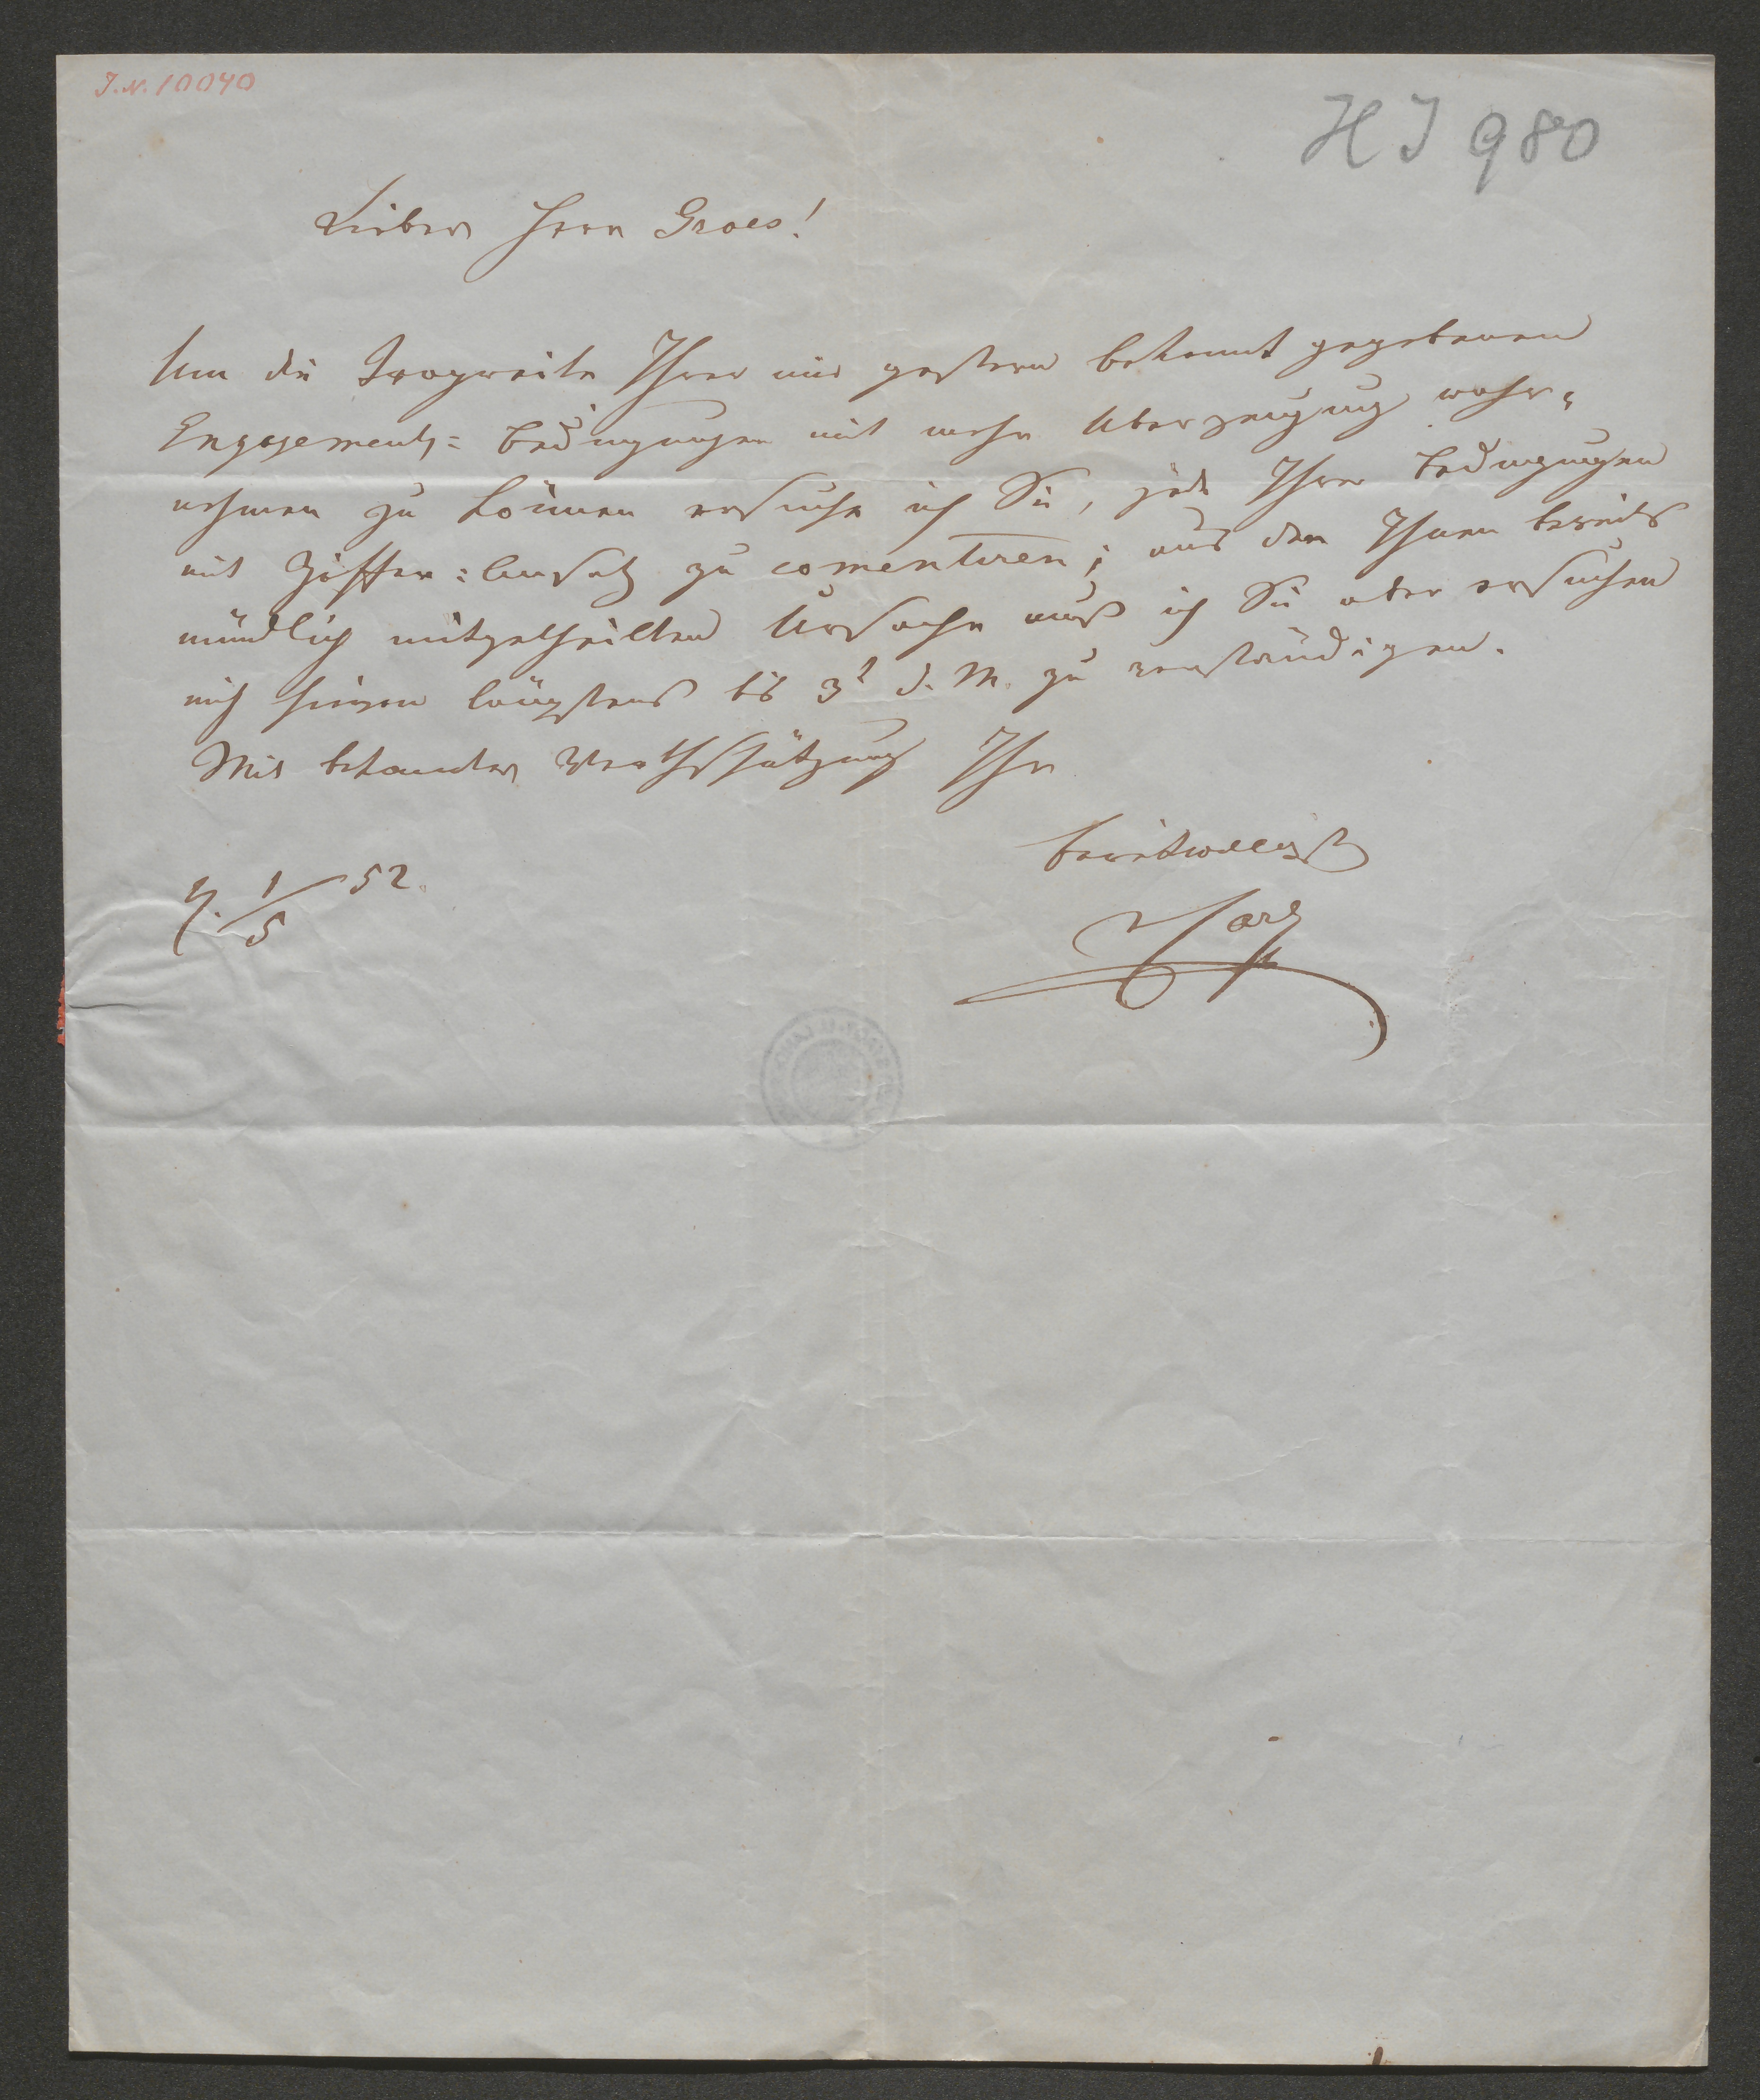 J.N. 10040
HJ 980
Lieber Herr Grois!
Um die Tragweite Ihrer mir gestern bekannt gegebenen
Engagements= bedingungen mit mehr Uberzeugung wahr=
nehmen zu können ersuche ich Sie, jede Ihrer bedingungen
mit Ziffer=Ansatz zu comentiren; aus der Ihnen bereits
mündlich mitgetheilten Ursache muß ich Sie aber ersuchen
mich hievon längstens bis 3t d. M. zu verständigen.
Mit bekannter Werthschätzung Ihr
bereitwilligst
1/5 52.